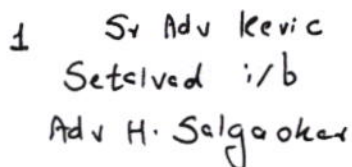 1 Sr Adv Kevic
Setalvad i/b
Adv H. Salgaoker